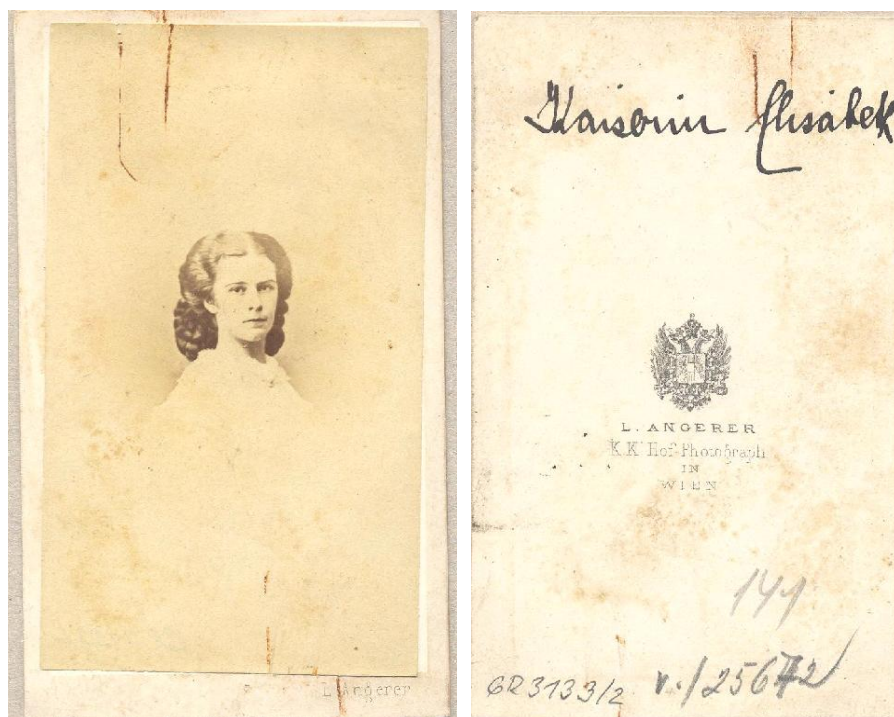 L. Angerer
Kaiserin Elisabeth
L. ANGERER
K.K. Hof-Photograph
IN
WIEN
141
GR3133/2 v./25672